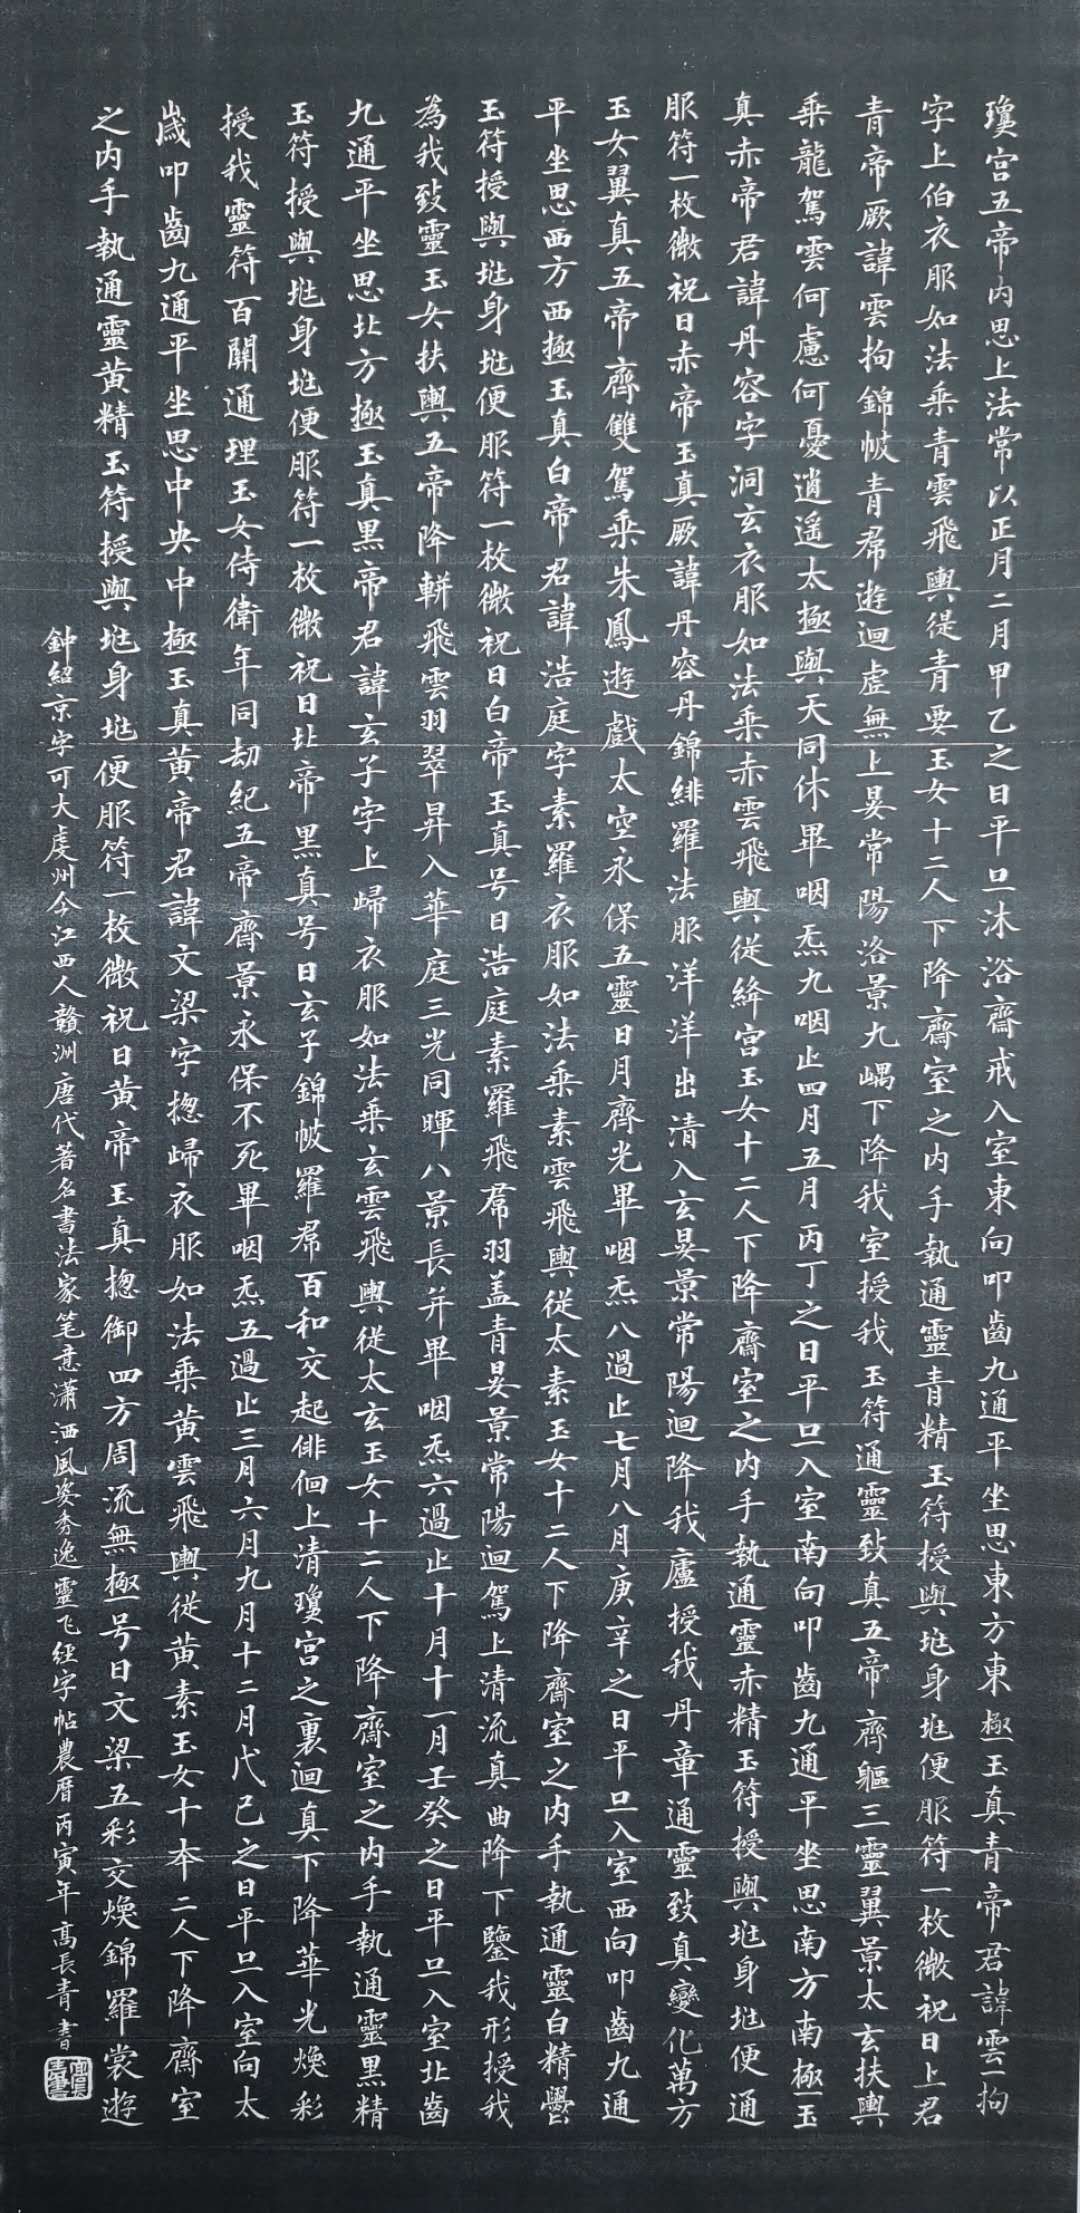 瓊宮五帝內思上法常以正月二月甲乙之日平旦沐浴齋戒入室東向叩齒九通平坐思東方東極玉真青帝君諱雲拘
字上伯衣服如法乘青雲飛輿從青要玉女十二人下降齋室之內手執通靈青精玉符授與兆身兆便服符一枚微祝曰上君
青帝厥諱雲拘錦帔青帬遊迴虛無上晏常陽洛景九嵎下降我室授我玉符通靈致真五帝齊軀三靈翼景太玄扶輿
乘龍駕雲何慮何憂逍遙太極與天同休畢咽炁九咽止四月五月丙丁之日平旦入室南向叩齒九通平坐思南方南極玉
真赤帝君諱丹容字洞玄衣服如法乘赤雲飛輿從絳宮玉女十二人下降齋室之內手執通靈赤精玉符授與兆身兆便通
服符一枚微祝曰赤帝玉真厥諱丹容丹錦緋羅法服洋洋出清入玄晏景常陽迴降我廬授我丹章通靈致真變化萬方
玉女翼真五帝齊雙駕乘朱鳳遊戲太空永保五靈日月齊光畢咽炁八過止七月八月庚辛之日平旦入室西向叩齒九通
平坐思西方西極玉真白帝君諱浩庭字素羅衣服如法乘素雲飛輿從太素玉女十二人下降齋室之內手執通靈白精
玉符授與兆身兆便服符一枚微祝曰白帝玉真号曰浩庭素羅飛帬羽盖青晏景常陽迴駕上清流真曲降下鑒我形授我
為我致靈玉女扶輿五帝降軿飛雲羽翠昇入華庭三光同暉八景長并畢咽炁六過止十月十一月壬癸之日平旦入室北齒
九通平坐思北方極玉真黑帝君諱玄子字上歸衣服如法乘玄雲飛輿從太玄玉女十二人下降齋室之內手執通靈黑精
玉符授與兆身兆便服符一枚微祝曰北帝黑真号曰玄子錦帔羅帬百和交起俳佪上清瓊宮之裏迴真下降華光煥彩
授我靈符百關通理玉女侍衛年同劫紀五帝齊景永保不死畢咽炁五過止三月六月九月十二月戊己之日平旦入室向太
歲叩齒九通平坐思中央中極玉真黃帝君諱文梁字揔歸衣服如法乘黃雲飛輿從黃素玉女十本二人下降齋室
之內手執通靈黃精玉符授與兆身兆便服符一枚微祝曰黃帝玉真揔御四方周流無極号曰文梁五彩交煥錦羅裳遊
鍾紹京字可大虔州今江西人贛洲唐代著名書法家笔意瀟洒風姿秀逸靈飞经字帖農曆丙寅年高長青書